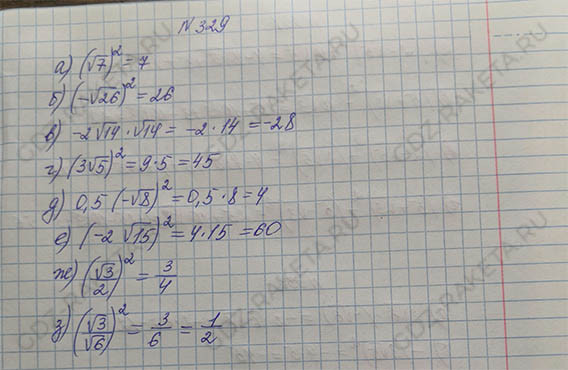 N 329
а) (√7)² = 7
б) (-√26)² = 26
в) -2√14 · √14 = -2 · 14 = -28
г) (3√5)² = 9 · 5 = 45
д) 0,5 (-√8)² = 0,5 · 8 = 4
е) (-2 √15)² = 4 · 15 = 60
ж) (√3/2)² = 3/4
з) (√3/√6)² = 3/6 = 1/2
GDZ-RAKETA.RU
GDZ-RAKETA.RU
GDZ-RAKETA.RU
GDZ-RAKETA.RU
GDZ-RAKETA.RU
GDZ-RAKETA.RU